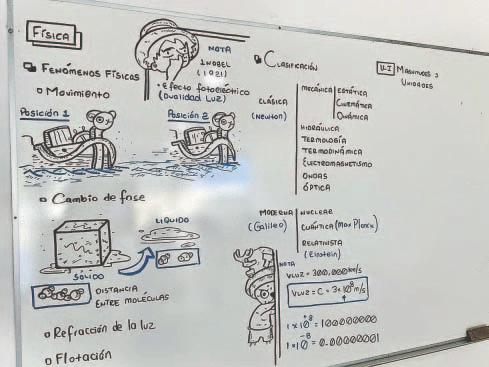 FÍSICA
FENÓMENOS FÍSICOS
Movimiento
Posición 1
Posición 2
NOTA
1 NOBEL
(1921)
• Efecto fotoeléctrico
(Dualidad Luz)
Cambio de fase
SÓLIDO
LÍQUIDO
DISTANCIA
ENTRE MOLÉCULAS
Refracción de la luz
Flotación
CLASIFICACIÓN
CLÁSICA
(NEWTON)
MECÁNICA
ESTÁTICA
CINEMÁTICA
DINÁMICA
HIDRÁULICA
TERMOLOGÍA
TERMODINÁMICA
ELECTROMAGNETISMO
ONDAS
ÓPTICA
MODERNA
(Galileo)
NUCLEAR
CUÁNTICA (Max Planck)
RELATIVISTA
(Einstein)
NOTA
VLUZ = 300,000 km/s
VLUZ = C = 3x10⁸ m/s
1x10⁺⁸ = 100000000
1x10⁻⁸ = 0.00000001
U-I MAGNITUDES Y
UNIDADES